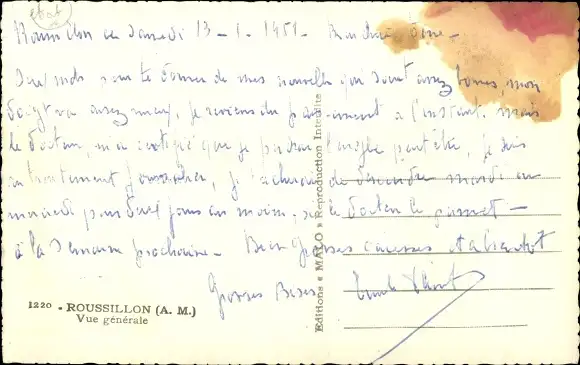 état
Roussillon ce Samedi 13-1.1951. Mon cher
Deux mots pour te donner de mes nouvelles que sont assez bonnes, mon
doigt va assez mieux, je reviens du pansement à l'instant. mais
le docteur, m'a que je l'ongle peut être, je suis
en traitement journalier, je de descendre mardi ou
mercredi pour deux jours au moins. si le docteur le permet -
à la Semaine prochaine - Bien Grosses caresses et à bientôt
Grosses Bises
1220 - ROUSSILLON (A. M.)
Vue générale
Editions « MALO » Reproduction Interdite